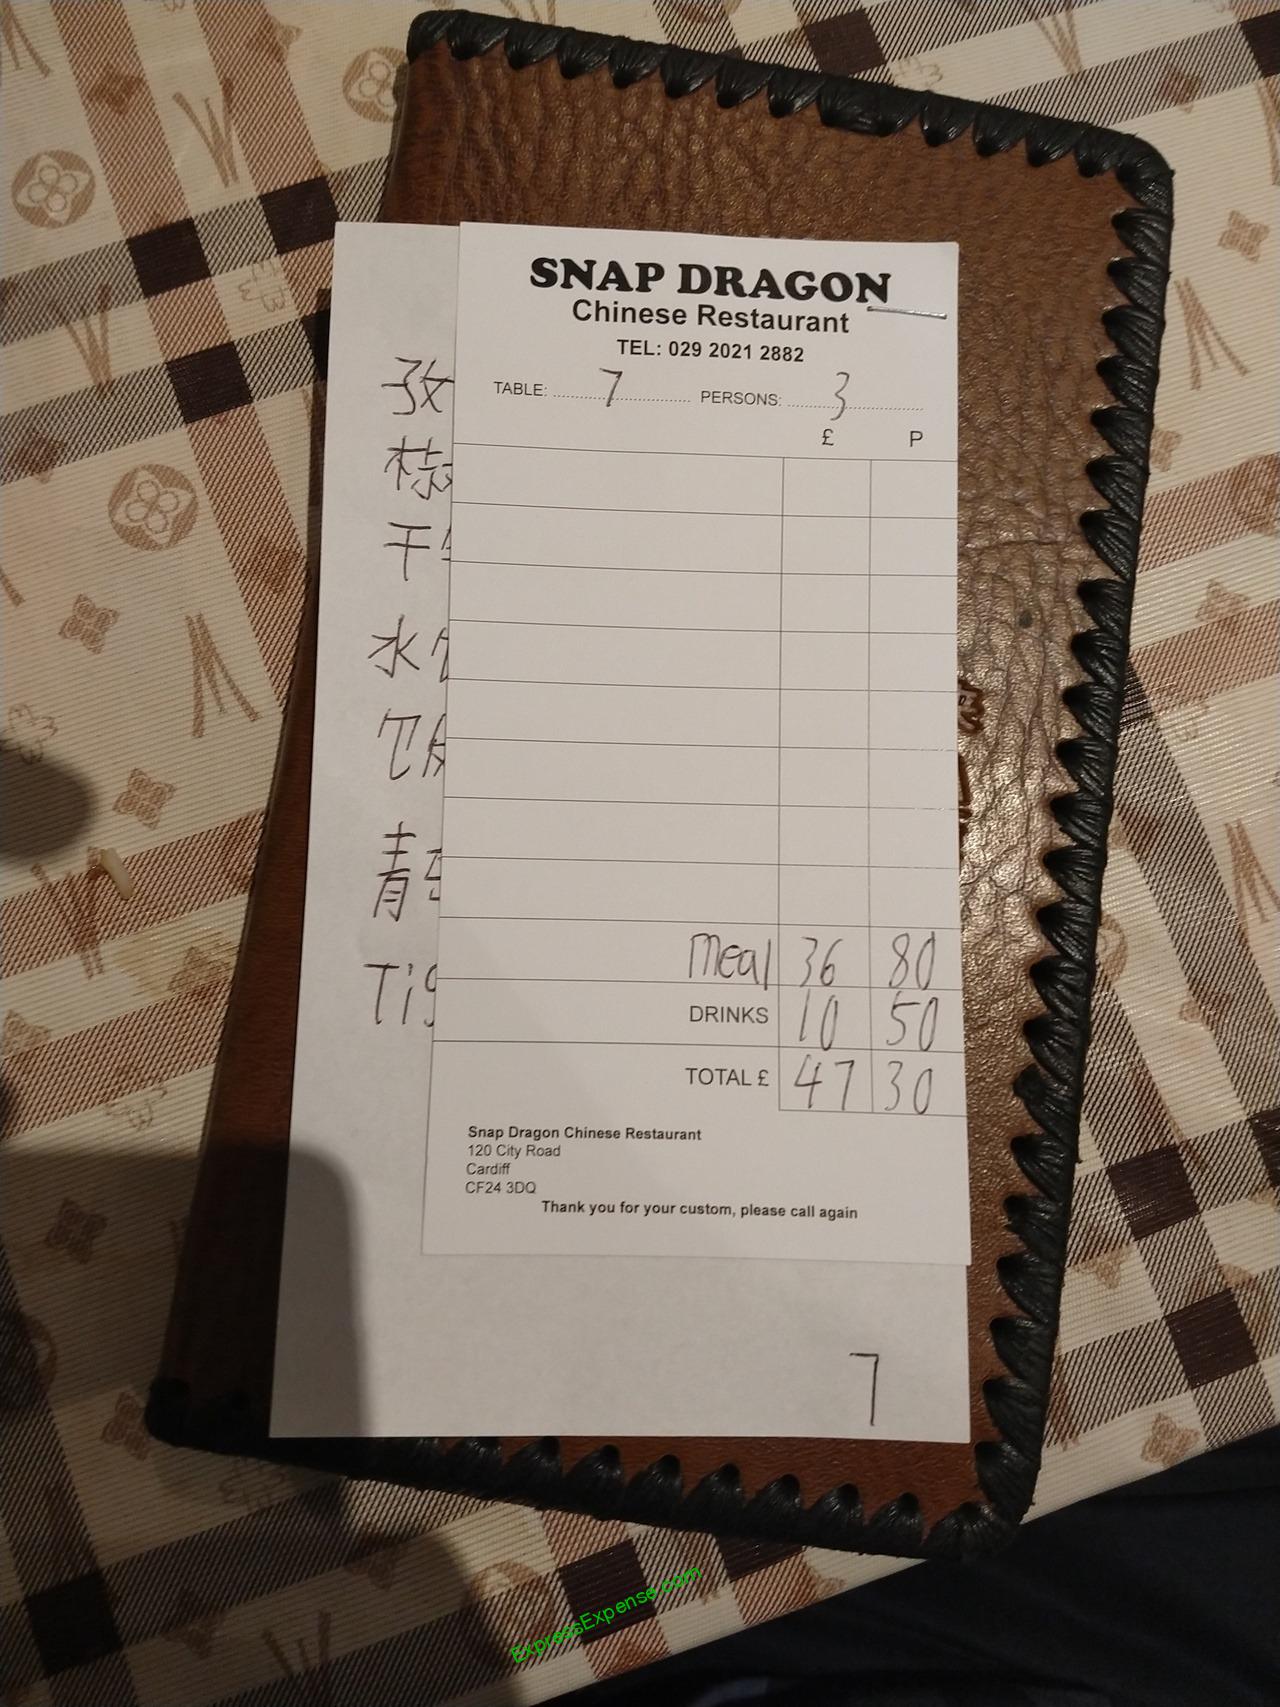 SNAP DRAGON
Chinese Restaurant
TEL: 029 2021 2882
TABLE: 7 PERSONS: 3
£ P
Meal 36 80
DRINKS 10 50
TOTAL £ 47 30
Snap Dragon Chinese Restaurant
120 City Road
Cardiff
CF24 3DQ
Thank you for your custom, please call again
干
水
青
Tig
7
ExpressExpense.com